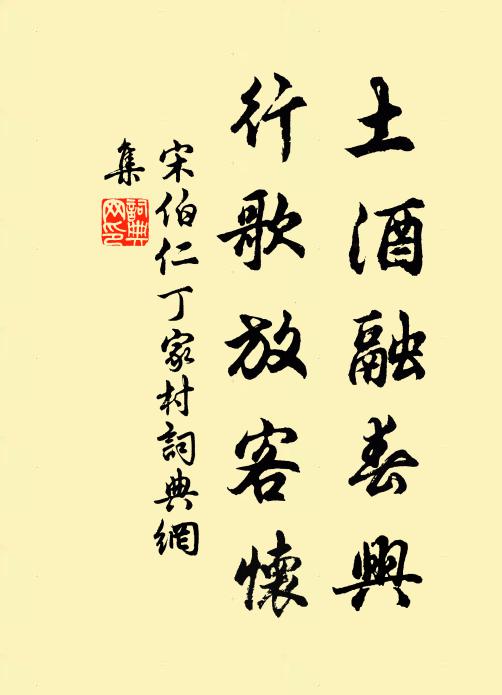 土酒融春興
行歌放客懷
宋伯仁丁家村詞典網
集
詞典
网印